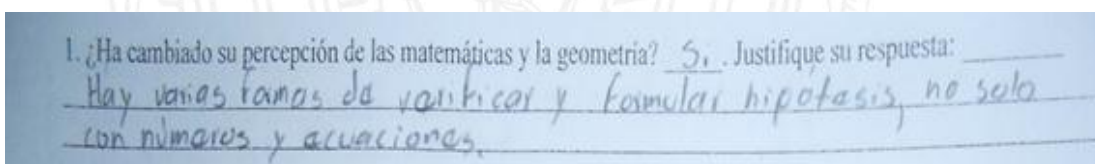 1. ¿Ha cambiado su percepción de las matemáticas y la geometria? Si. Justifique su respuesta:
Hay varias ramas de verificar y formular hipotesis, no solo
con numeros y ecuaciones.